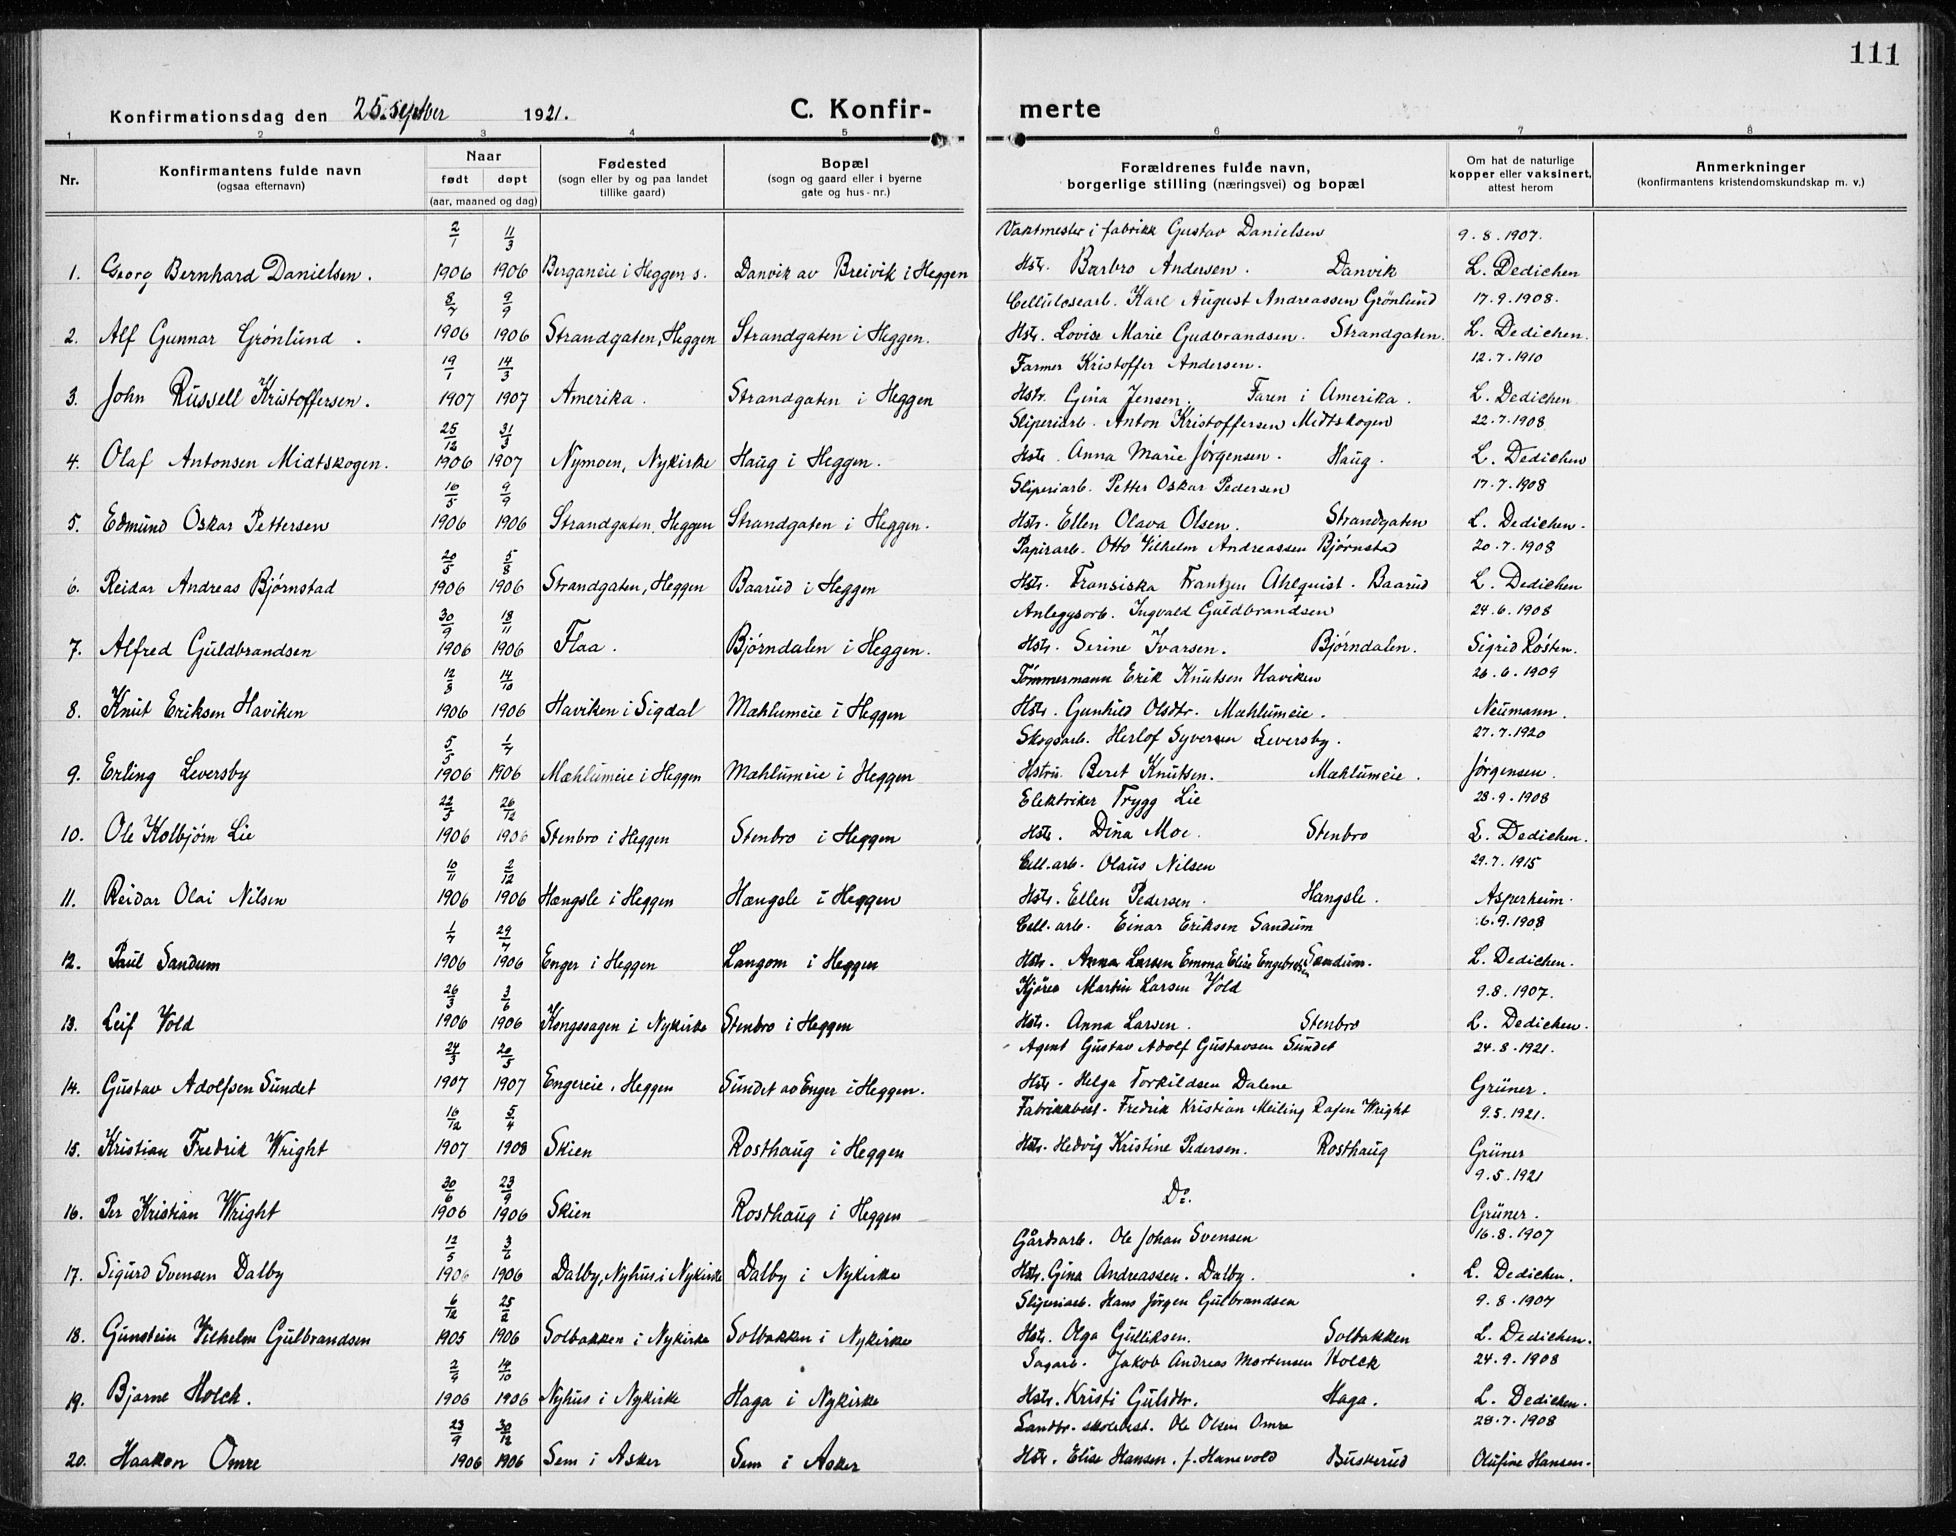 111
Konfirmationsdag den 25. septber 1921. C. Konfir- merte
1 2 3 4 5 6 7 8
Nr. Konfirmantens fulde navn (ogsaa efternavn) Naar født døpt (aar, maaned og dag) Fødested (sogn eller by og paa landet tillike gaard) Bopæl (sogn og gaard eller i byerne gate og hus-nr.) Forældrenes fulde navn, borgerlige stilling (næringsvei) og bopæl Om hat de naturlige kopper eller vaksinert, attest herom Anmerkninger (konfirmantens kristendomskundskap m. v.)
2/1 11/3 Vaktmester i fabrikk Gustav Danielsen 9.8.1907.
1. Georg Bernhard Danielsen. 1906 1906 Berganeie i Heggen s. Danvik av Breivik i Heggen Hstr. Barbro Andersen. Danvik L. Dedichen
8/7 9/9 Cellulosearb. Karl August Andreassen Grönlund 17.9.1908.
2. Alf Gunnar Grønlund. 1906 1906 Strandgaten, Heggen Strandgaten i Heggen. Hstr. Lovise Marie Gudbrandsen. Strandgaten. L. Dedichen.
19/1 14/3 Farmer Kristoffer Andersen. 12.7.1910
3. John Russell Kristoffersen. 1907 1907 Amerika. Strandgaten i Heggen Hstr. Gina Jensen. Faren i Amerika. L. Dedichen
25/12 31/3 Sliperiarb. Anton Kristoffersen Midtskogen 22.7.1908
4. Olaf Antonsen Midtskogen. 1906 1907 Nymoen, Nykirke Haug i Heggen. Hstr. Anna Marie Jørgensen. Haug. L. Dedichen
16/5 9/9 Sliperiarb. Petter Oskar Pedersen 17.7.1908
5. Edmund Oskar Pettersen 1906 1906 Strandgaten, Heggen Strandgaten i Heggen. Hstr. Ellen Olava Olsen. Strandgaten L. Dedichen.
20/5 5/8 Papirarb. Otto Vilhelm Andreassen Bjørnstad 20.7.1908
6. Reidar Andreas Bjørnstad 1906 1906 Strandgaten, Heggen Baarud i Heggen Hstr. Fransiska Frantzen Ahlquist. Baarud L. Dedichen
30/9 18/11 Anleggsarb. Ingvald Guldbrandsen 24.6.1908
7. Alfred Guldbrandsen 1906 1906 Flaa. Bjørndalen i Heggen. Hstr. Serine Ivarsen. Bjørndalen. Sigrid Rosten.
12/3 14/10 Tömmermann Erik Knutsen Haviken 26.6.1909
8. Knut Eriksen Haviken 1906 1906 Haviken i Sigdal Mæhlumeie i Heggen Hstr. Gunhild Olsdtr. Mæhlumeie. Neumann.
5/5 1/7 Skogsarb. Herlof Syversen Leversby. 27.7.1920
9. Erling Leversby 1906 1906 Mæhlumeie i Heggen Mæhlumeie i Heggen Hstru Beret Knutsen. Mæhlumeie. Jørgensen.
22/3 26/12 Elektriker Trygg Lie 28.9.1908
10. Ole Kolbjørn Lie 1906 1906 Stenbro i Heggen Stenbro i Heggen Hstr. Dina Moe. Stenbro L. Dedichen.
10/11 2/12 Cell.arb. Olaus Nilsen 29.7.1915
11. Reidar Olai Nilsen 1906 1906 Hængsle i Heggen Hængsle i Heggen Hstr. Ellen Pedersen. Hangsle. Asperheim.
1/7 29/7 Cell.arb. Einar Eriksen Sandum 6.9.1908
12. Paul Sandum 1906 1906 Enger i Heggen Langom i Heggen Hstr. Anna Larsen Emma Elise Engebretsen Sandum. L. Dedichen.
26/3 3/6 Kjörer Martin Larsen Vold 9.8.1907.
13. Leif Vold 1906 1906 Kongssagen i Nykirke Stenbro i Heggen Hstr. Anna Larsen. Stenbro L. Dedichen.
24/3 20/5 Agent Gustav Adolf Gustavsen Sundet 24.8.1921.
14. Gustav Adolfsen Sundet 1907 1907 Engereie i Heggen Sundet av Enger i Heggen. Hstr. Helga Torkildsen Dalene Grüner.
16/12 5/4 Fabrikkbest. Fredrik Kristian Meiling Rafen Wright 9.5.1921.
15. Kristian Fredrik Wright 1907 1908 Skien Rosthaug i Heggen Hstr. Hedvig Kristine Pedersen. Rosthaug Grüner
30/6 23/9 9.5.1921
16. Per Kristian Wright 1906 1906 Skien Rosthaug i Heggen Do. Grüner.
12/5 3/6 Gårdsarb. Ole Johan Svensen 16.8.1907
17. Sigurd Svensen Dalby 1906 1906 Dalby, Nyhus i Nykirke Dalby i Nykirke Hstr. Gina Andreassen. Dalby. L. Dedichen.
6/12 25/2 Sliperiarb. Hans Jørgen Gulbrandsen 9.8.1907
18. Gunstein Vilhelm Gulbrandsen 1905 1906 Solbakken i Nykirke Solbakken i Nykirke Hstr. Olga Gulliksen. Solbakken L. Dedichen.
2/9 14/10 Sagarb. Jakob Andreas Mortensen Holck 24.9.1908
19. Bjarne Holck. 1906 1906 Nyhus i Nykirke Haga i Nykirke Hstr. Kristi Gulsdtr. Haga. L. Dedichen.
23/9 30/12 Landbr.skolebest. Ole Olsen Omre 28.7.1908
20. Haakon Omre 1906 1906 Sem i Asker Sem i Asker Hstr. Elise Hansen. f. Hanevold Buskerud Olufine Hansen.